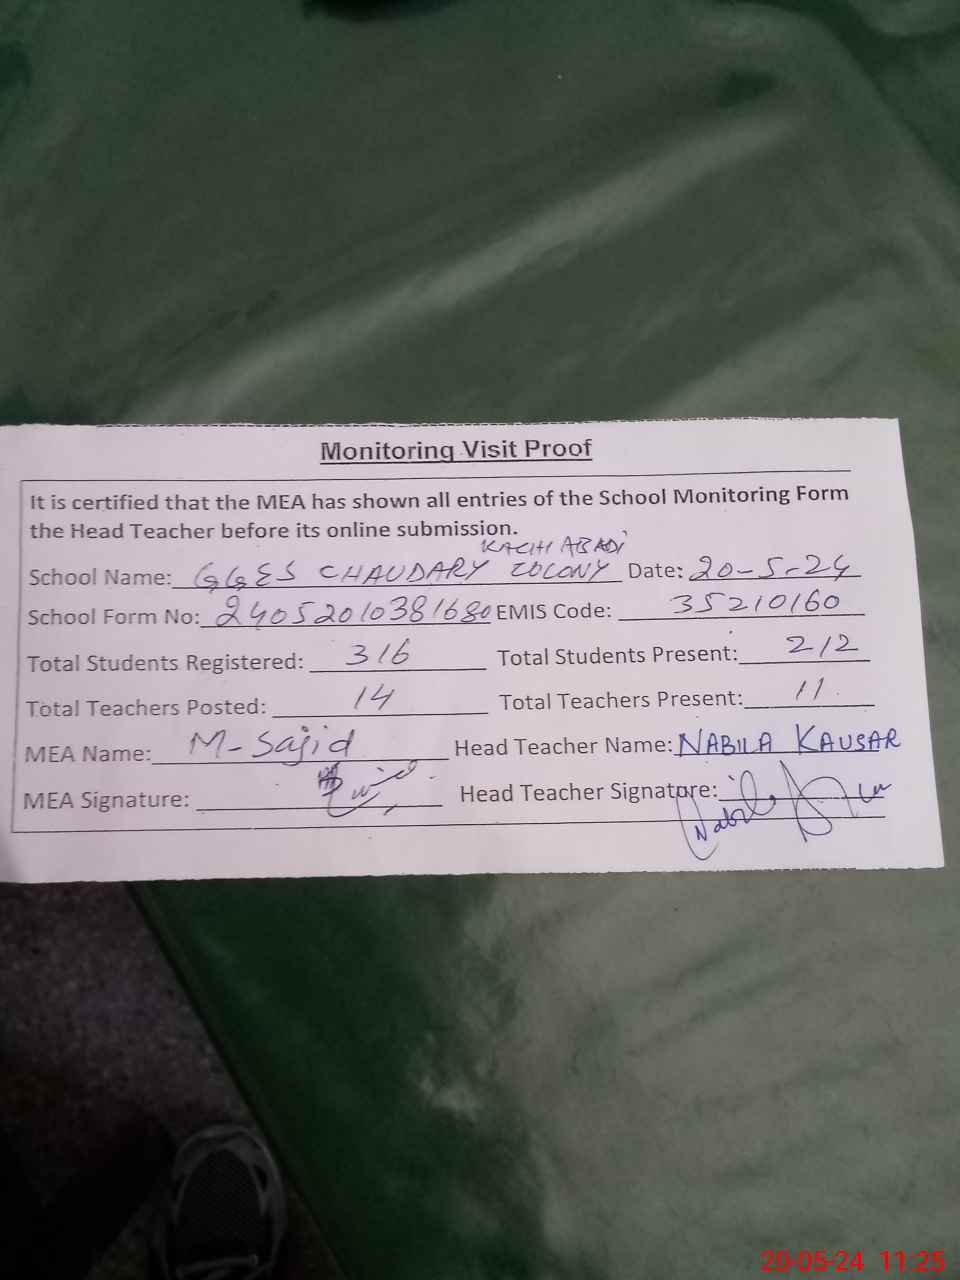 Monitoring Visit Proof
It is certified that the MEA has shown all entries of the School Monitoring Form
the Head Teacher before its online submission.
KACHI ABADI
School Name: GGES CHAUDARY COLONY Date: 20-5-24
School Form No: 24052010381680 EMIS Code: 35210160
Total Students Registered: 316 Total Students Present: 212
Total Teachers Posted: 14 Total Teachers Present: 11
MEA Name: M-Sajid Head Teacher Name: NABILA KAUSAR
MEA Signature: Head Teacher Signature:
20-05-24 11:25